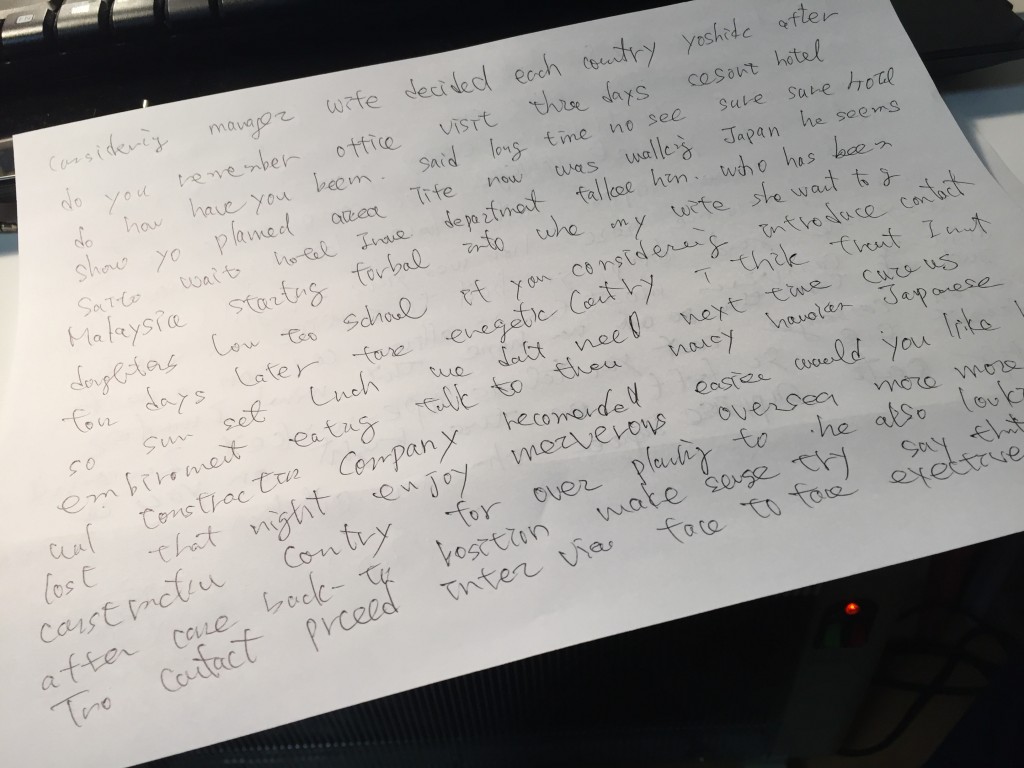 considering manager wife decided each country yoshide after
do you remember office visit three days cesort hotel
do how have you beem. said long time no see sure sure hotel
show yo planned area life now was walking Japan he seems
Saito wait hotel Inoue department talkee him. who has been
Malaysia starting forbal into who my wife she wait to g
daughters low too school if you considereing introduce contact
four days later fare enegetic Country I think trent I nut
so sun set Lunch we don't need next time cure us
embiroment eating talk to them nancy hawaian Japanese
and construction company recomended easier would you like
lost that night enjoy merverous oversea more more
construction contry for over planing to he also looki
after came back to position make sense try say that
Two contact prceed inter view face to face exective